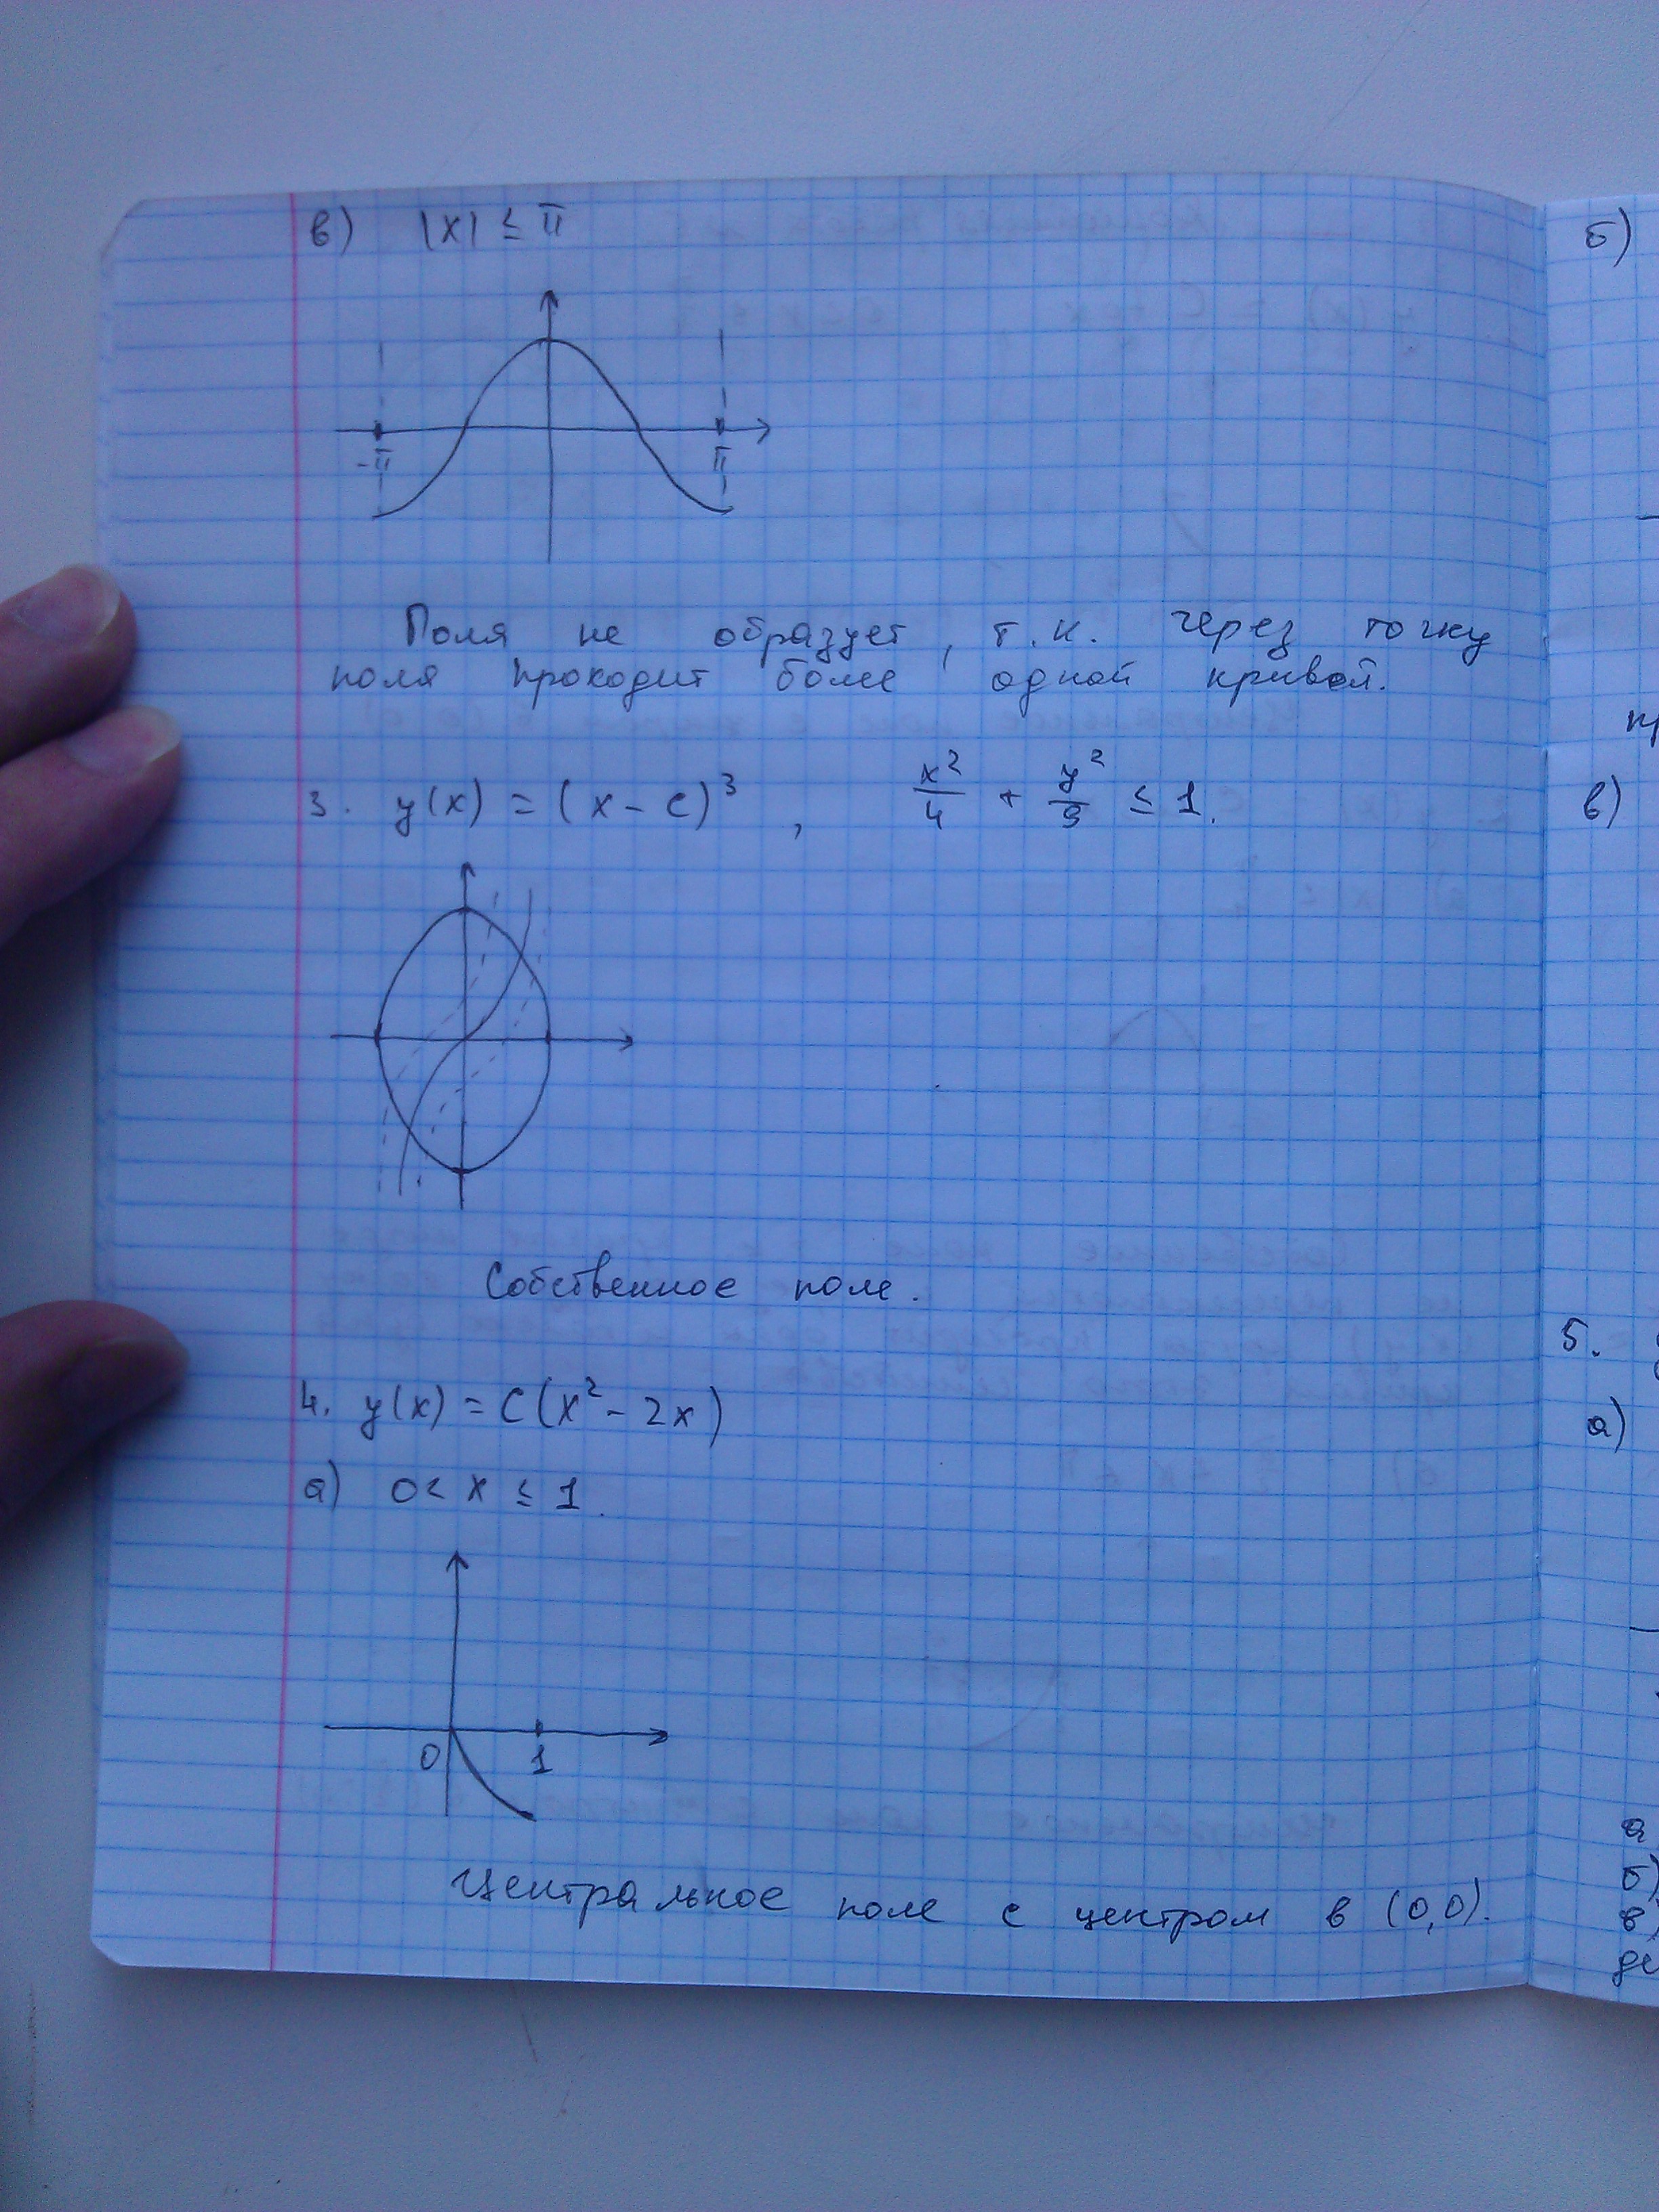 в) |x| ≤ π
-π π
Поля не образует, т.к. через точку
поля проходит более одной кривой.
3. y(x) = (x - c)³, x²/4 + y²/9 ≤ 1.
Собственное поле.
4. y(x) = C(x² - 2x)
а) 0 < x ≤ 1.
0 1
Центральное поле с центром в (0,0).
б)
в)
5.
а)
а
б)
в)